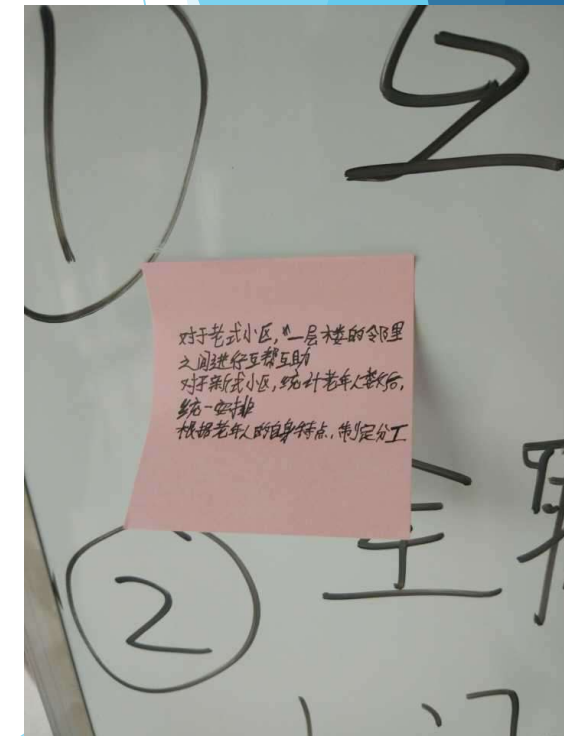 ①
对于老式小区，一层楼的邻里
之间进行互帮互助
对于新式小区，统计老年人数后，
统一安排
根据老年人的自身特点，制定分工
②